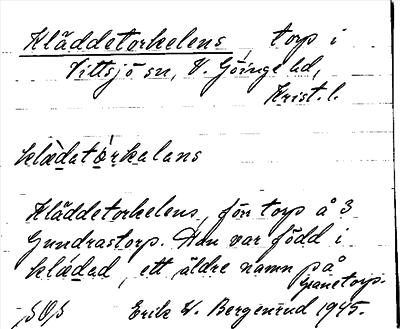 Kläddetorkelens, torp i
Vittsjö sn, V. Göinge hd,
Krist. l.
klædatòrkalans
Kläddetorkelens, förr torp å 3
Gundrastorp. Han var född i
klædad, ett äldre namn på
Granetorp.
Erik W. Bergenrud 1945.